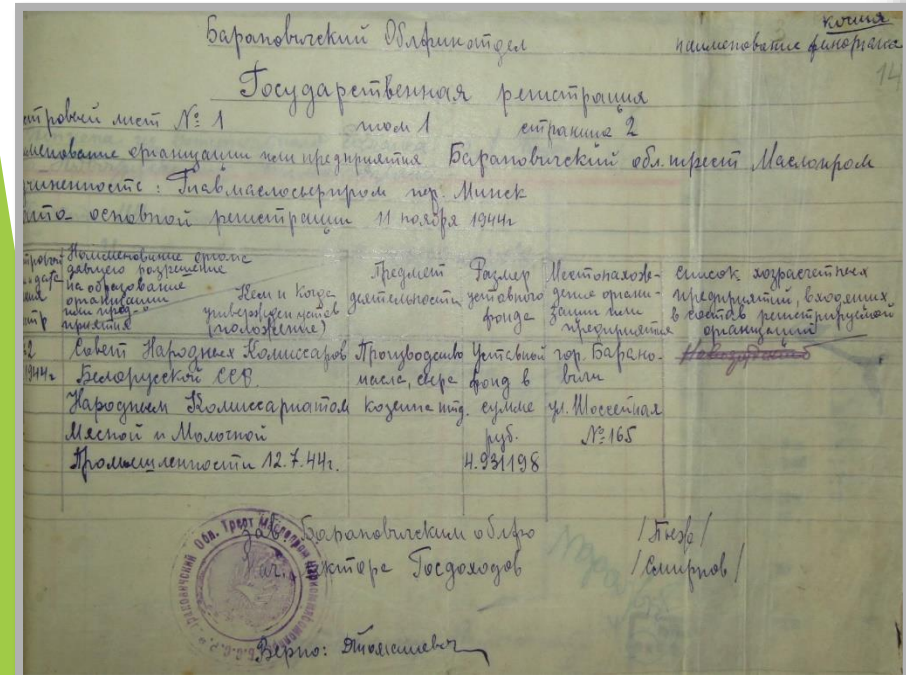 копия
Барановичский Облфинотдел
наименование финоргана
14
Государственная регистрация
стровый лист № 1 том 1 страница 2
именование организации или предприятия Барановичский обл. трест Маслопром
чиненность: Главмаслосырпром гор. Минск
ата основной регистрации 11 ноября 1944г
Наименование органа
давшего разрешение
на образование
организации
или пред-
приятия
Кем и когда
утвержден устав
(положение)
Предмет
деятельности
Размер
уставного
фонда
Местонахож-
дение органи-
зации или
предприятия
список хозрасчетных
предприятий, входящих
в состав регистрируемой
организации
Совет Народных Комиссаров
Белорусской ССР.
Народным Комиссариатом
Мясной и Молочной
Промышленности 12.7.44г.
1944г
Производство
масла, сыра
казеина итд.
Уставной
фонд в
сумме
руб.
4.931198
гор. Барано-
вичи
ул. Шоссейная
№ 165
Зав. Барановичским облфо
Нач. сектора Госдоходов /Смирнов/
Обл. Трест Маслопром
Верно: